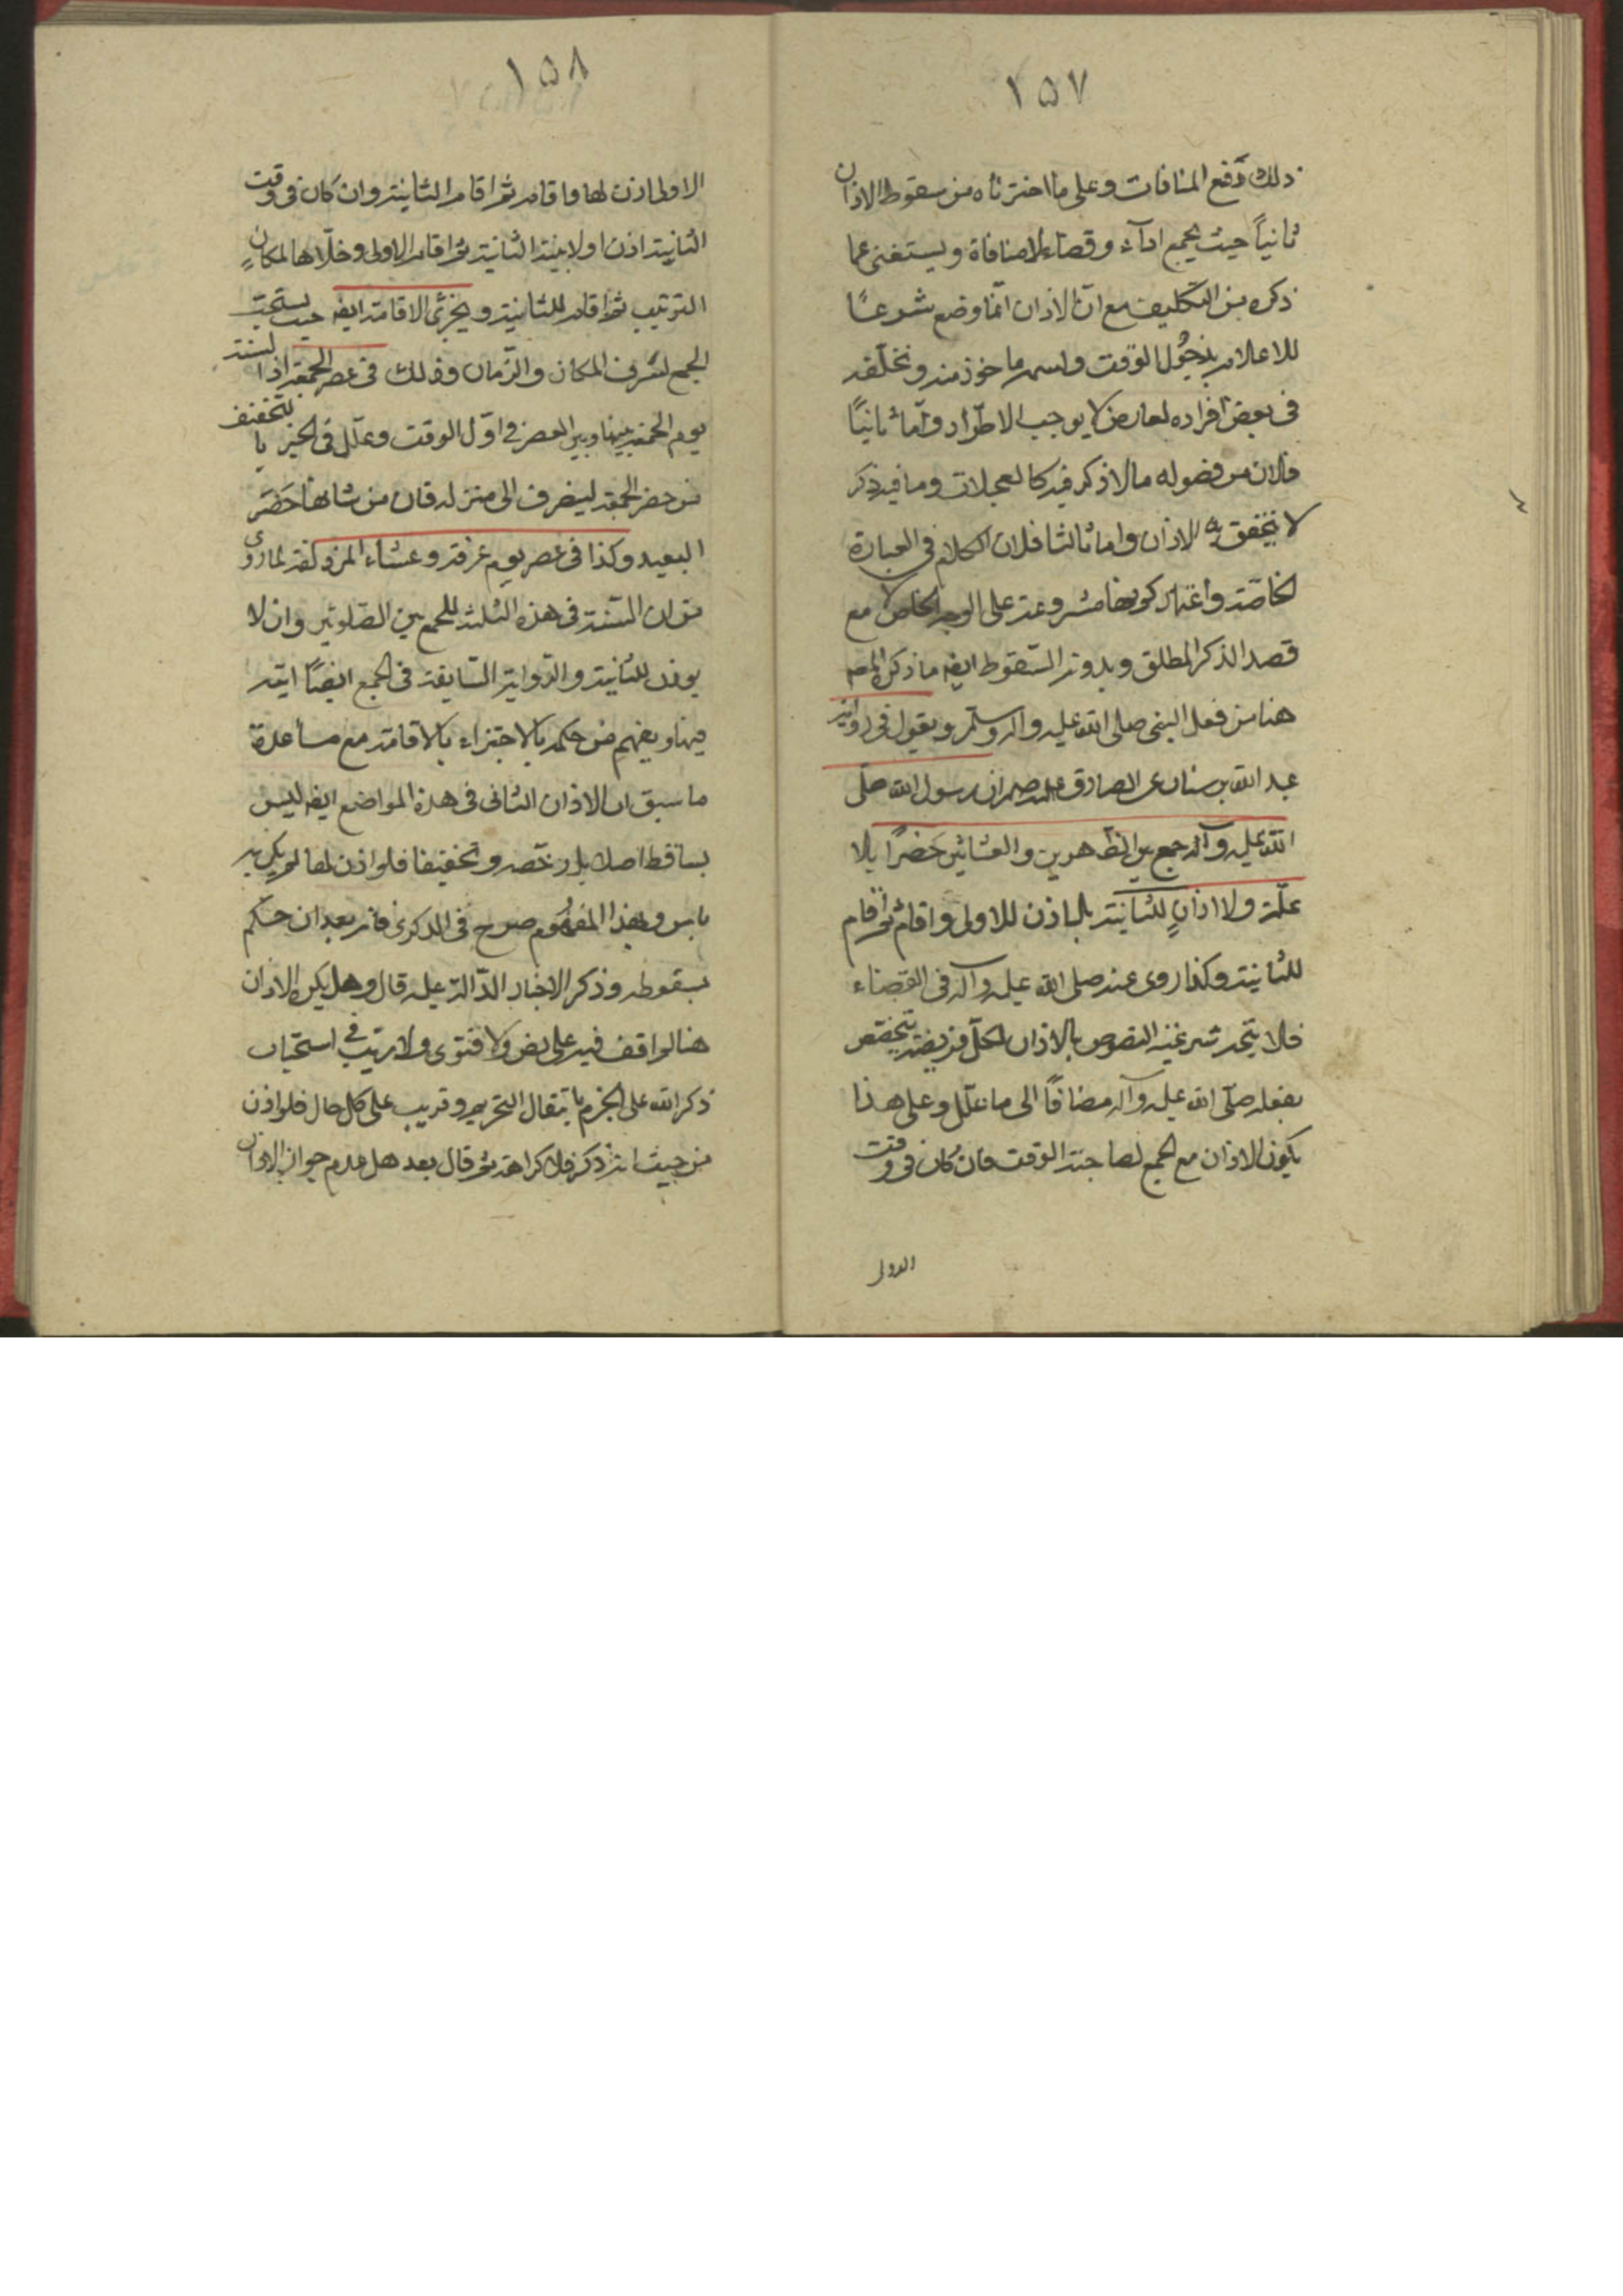 ١٥٧
ذلك دفع المنافات وعلى ما اخترناه من سقوط الاذان
ثانياً حيث يجمع اداء وقضاء لا منافاة ويستغنى عما
ذكره من التكليف مع ان الاذان انما وضع شرعًا
للاعلام بدخول الوقت واسمه ماخوذ منه وتخلفه
فى بعض افراده لعارض لا يوجب الاطراد واما ثانيًا
فلان من فصوله مالا ذكر فيه كالحيعلات وما فيه ذكر
لا يتحقق به الاذان واما ثالثا فلان الكلام فى العبارة
الخاصة واعتبار كونها مشروعة على الوجه الخاص لا مع
قصد الذكر المطلق ويدوند السقوط ايضا ما ذكره المصـ
هنا من فعل النبى صلى الله عليه واله وسلم وبقول فى رواية
عبد الله بن سنان عن الصادق ان رسول الله صلى
الله عليه وآله جمع بين الظهرين والعشائين حَضَرًا بلا
علة ولا اذانٍ للثانية بل اذن للاولى واقام ثم اقام
للثانية وكذا روى عنه صلى الله عليه وآله فى القضاء
فلا يتجه شرعية النصوص بالاذان لكل فريضة تخصص
بفعله صلى الله عليه وآله مضافًا الى ما علل وعلى هذا
يكون الاذان مع الجمع لصاحبة الوقت فان كان فى وقت
الاولى
١٥٨
الاولى اذن لها واقام ثم اقام الثانية وان كان فى وقت
الثانية اذن اولا بنية الثانية ثم اقام الاولى وخلاها لمكان
الترتيب ثم اقام للثانية ويجزئ الاقامة ايضا حيث يستحب
الجمع لشرف المكان والزمان وذلك فى عصر الجمعة اذ السنة
يوم الجمعة بينها وبين العصر فى اول الوقت وعلل فى الخبر بالتخفيف
من حضر الجمعة لينصرف الى منزله فان من شانها حَضَرَ
البعيد وكذا فى عصر يوم عرفة وعشاء المزدلفة لما روى
من ان السنة فى هذه الثلثة للجمع بين الصلوتين وان لا
يوذن للثانية والرواية السابقة فى الجمع ايضًا اتية
فيها ويفهم من حكمه بالاجتزاء بالاقامة مع مساعدة
ما سبق ان الاذان الثانى فى هذه المواضع ايضا ليس
بساقط اصلا بل رخصة وتخفيفا فلو اذن لها لم يكن به
باس وبهذا المفهوم صرح فى الذكرى فانه بعد ان حكم
بسقوطه وذكر الاخبار الدالة عليه قال وهل يكره الاذان
هنا لم اقف فيه على نص ولا فتوى ولا ريب فى استحباب
ذكر الله على الجزم بانتقال التحريم وقريب على كل حال فلو اذن
من حيث انه ذكر فلا كراهة ثم قال بعد هل عدم جواز الاذان